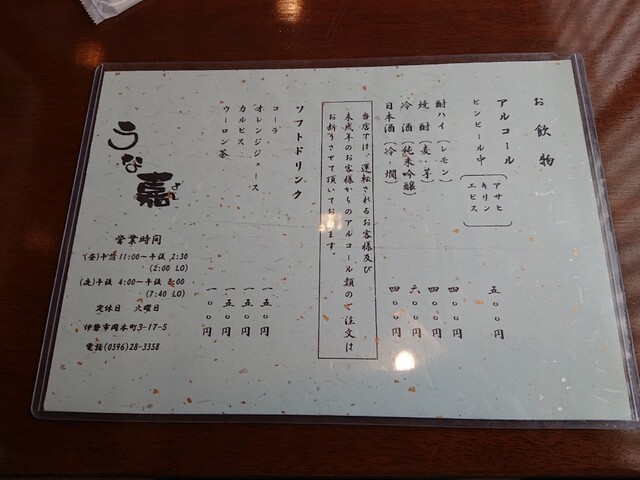 お飲物
アルコール
ビンビール中 アサヒ キリン エビス 五〇〇円
酎ハイ(レモン) 四〇〇円
焼酎(麦・芋) 四〇〇円
冷酒(純米吟醸) 六〇〇円
日本酒(冷・燗) 四〇〇円
当店では、運転されるお客様及び
未成年のお客様からのアルコール類のご注文は
お断りさせて頂いております。
ソフトドリンク
コーラ 一五〇円
オレンジジュース 一五〇円
カルピス 一五〇円
ウーロン茶 一〇〇円
うな嘉
よし
営業時間
(昼)午前 11:00～午後 2:30
(2:00 LO)
(夜)午後 4:00～午後 8:00
(7:40 LO)
定休日 火曜日
伊勢市岡本町3-17-5
電話(0596)28-3358